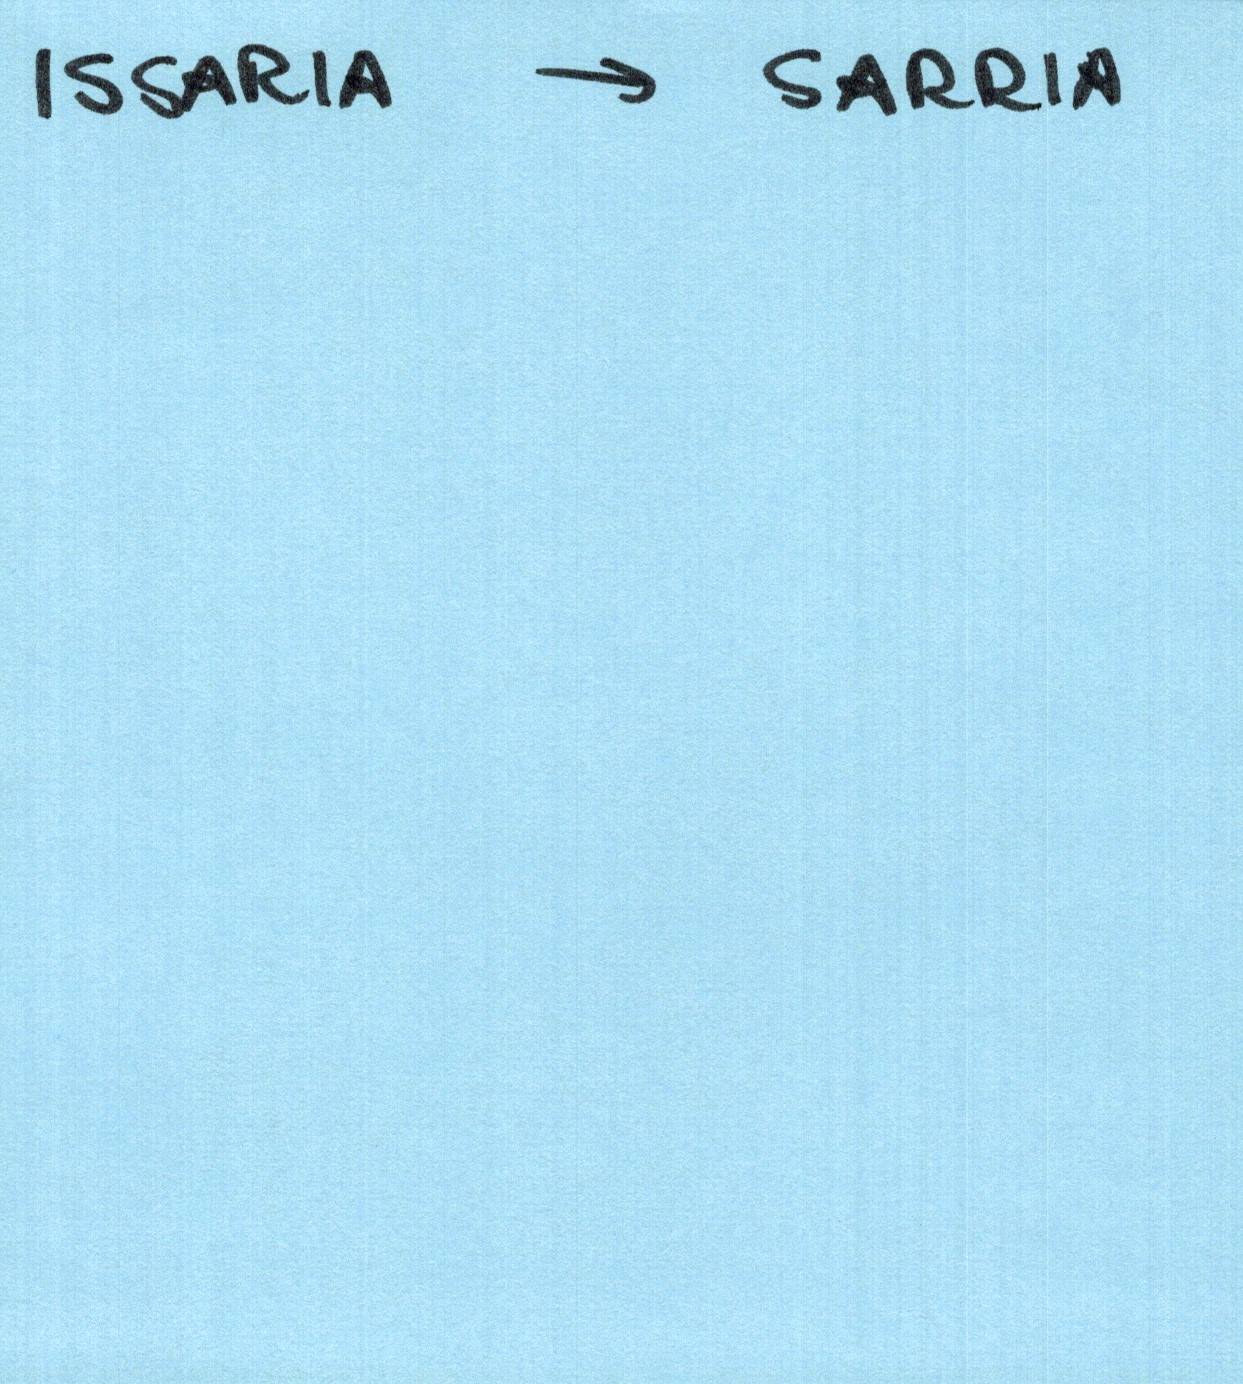 ISSARIA → SARRIA